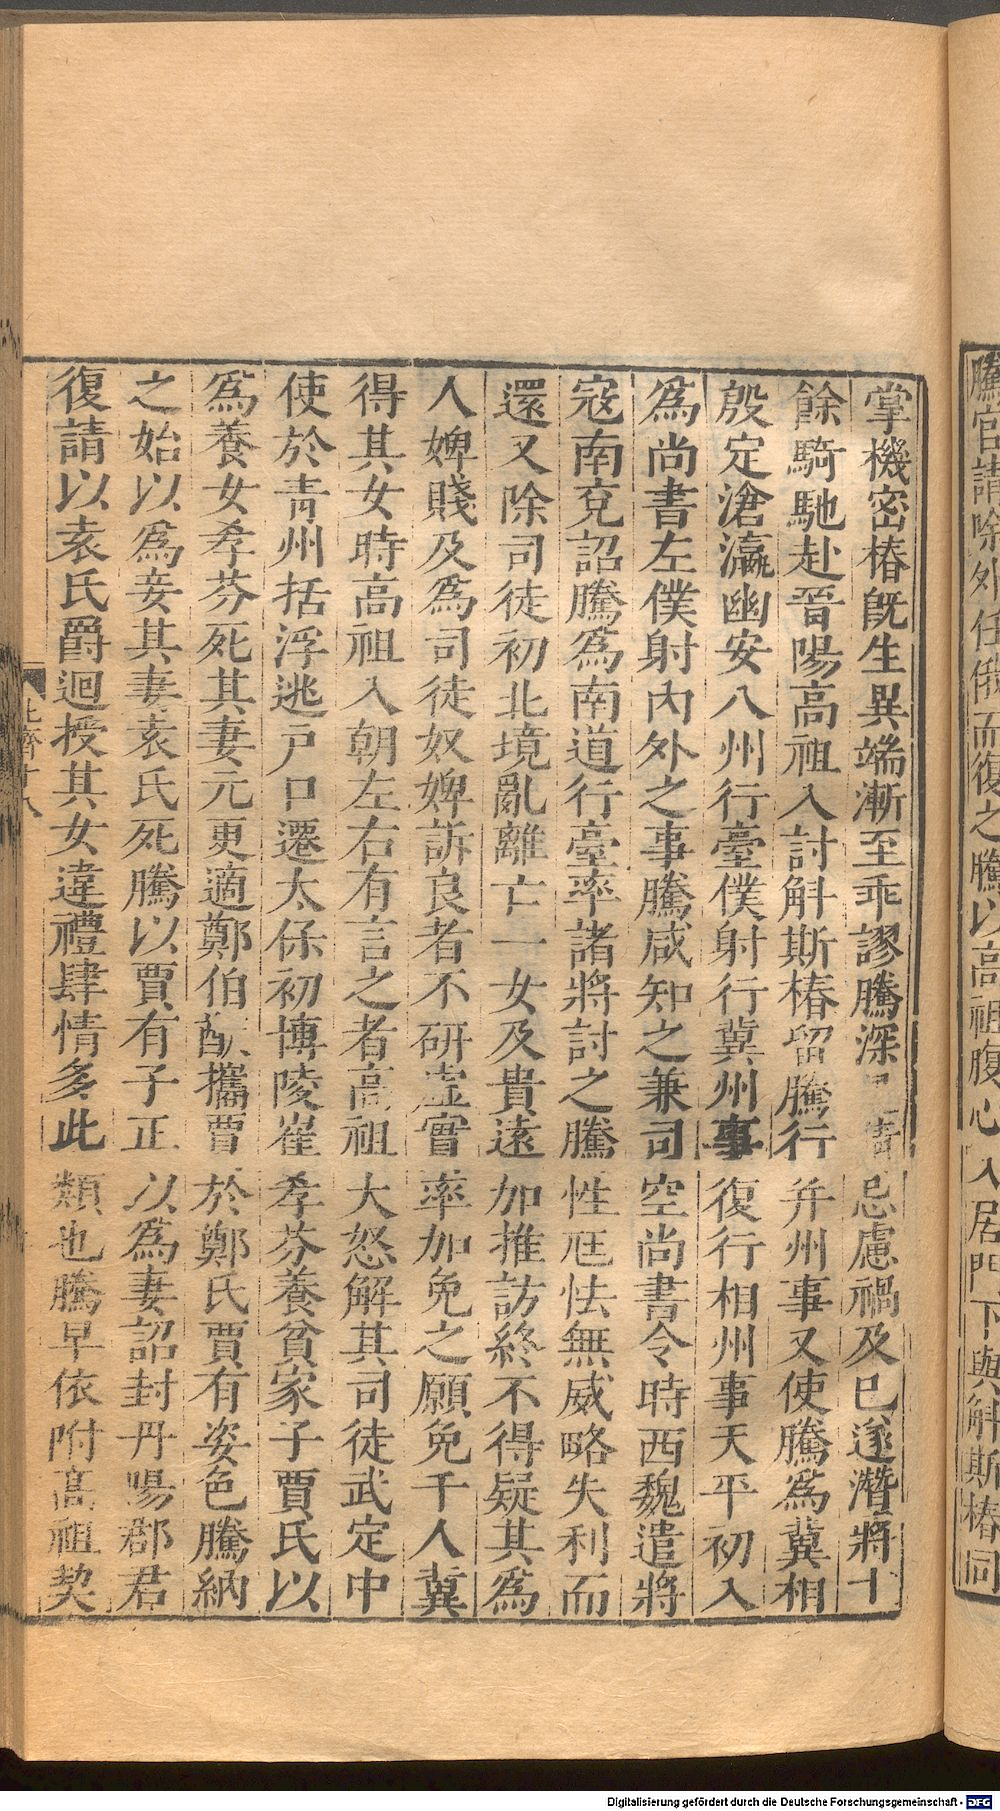 騰官請除外任俄而復之騰以高祖腹心入居門下與斛斯椿同
掌機密椿旣生異端漸至乖謬騰深忌慮禍及已遂潛將十
餘騎馳赴晉陽高祖入討斛斯椿留騰行并州事又使騰爲冀相
殷定滄瀛幽安八州行臺僕射行冀州事復行相州事天平初入
爲尚書左僕射内外之事騰咸知之兼司空尚書令時西魏遣將
寇南兗詔騰爲南道行臺率諸將討之騰性尫怯無威略失利而
還又除司徒初北境亂離亡一女及貴遠加推訪終不得疑其爲
人婢賤及爲司徒奴婢訴良者不研虛實率加免之願免千人冀
得其女時高祖入朝左右有言之者高祖大怒解其司徒武定中
使於青州括浮逃戶口遷太保初博陵崔孝芬養貧家子賈氏以
爲養女孝芬死其妻元更適鄭伯猷攜賈於鄭氏賈有姿色騰納
之始以爲妾其妻袁氏死騰以賈有子正以爲妻詔封丹陽郡君
復請以袁氏爵迴授其女違禮肆情多此類也騰早依附高祖契
北齊十八
Digitalisierung gefördert durch die Deutsche Forschungsgemeinschaft - DFG